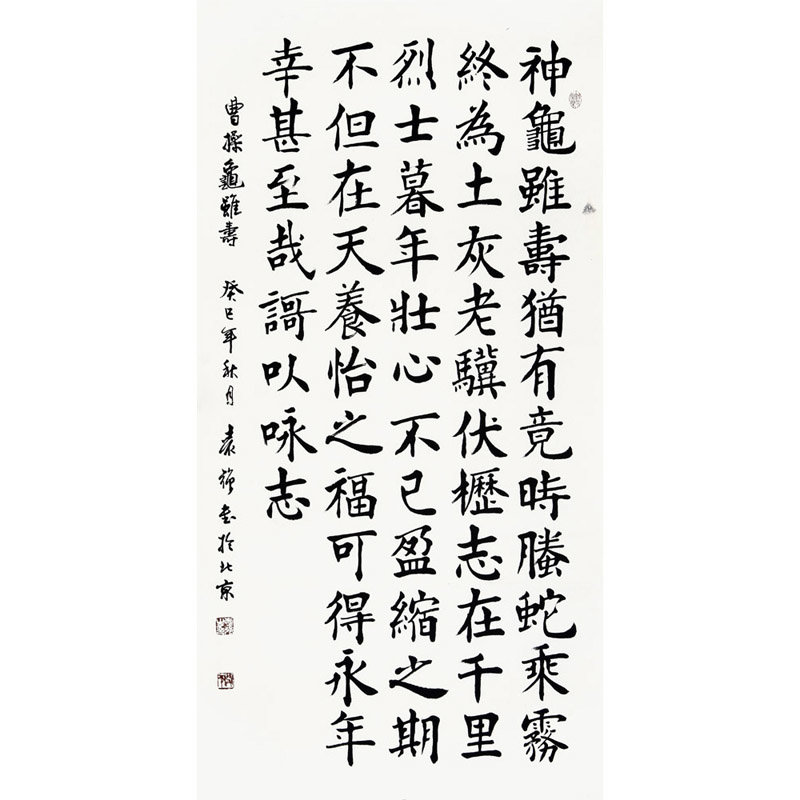 神龜雖壽猶有竟時螣蛇乘霧
終為土灰老驥伏櫪志在千里
烈士暮年壯心不已盈縮之期
不但在天養怡之福可得永年
幸甚至哉謌以咏志
曹操龜雖壽 癸巳年秋月 袁强書於北京